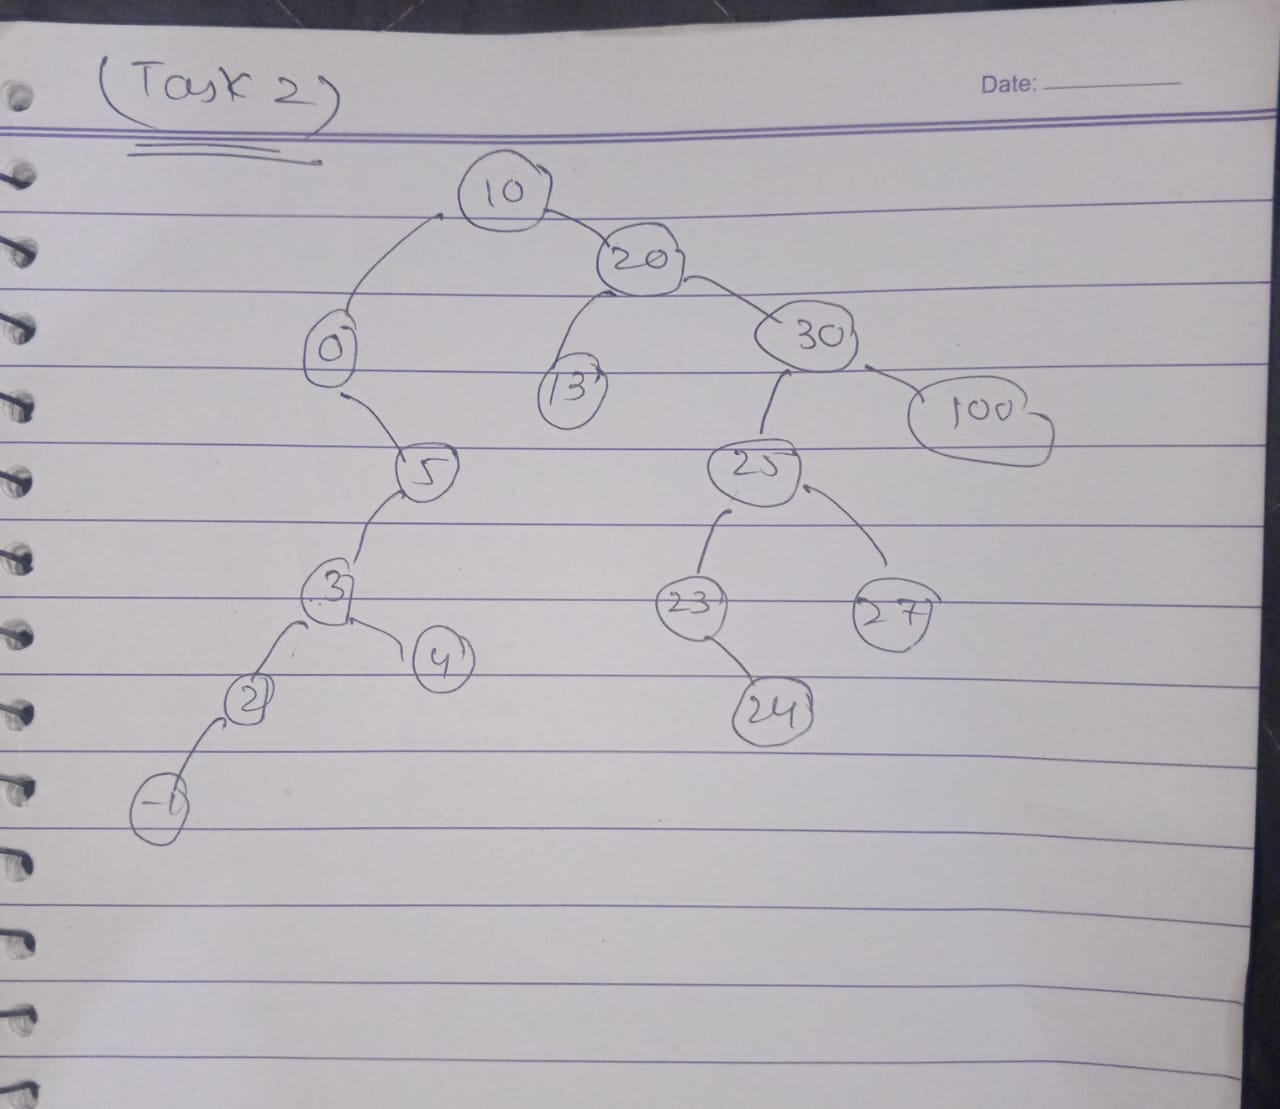 (Task 2)
Date:
10
20
0
30
13
100
5
25
3
23
27
4
2
24
-1